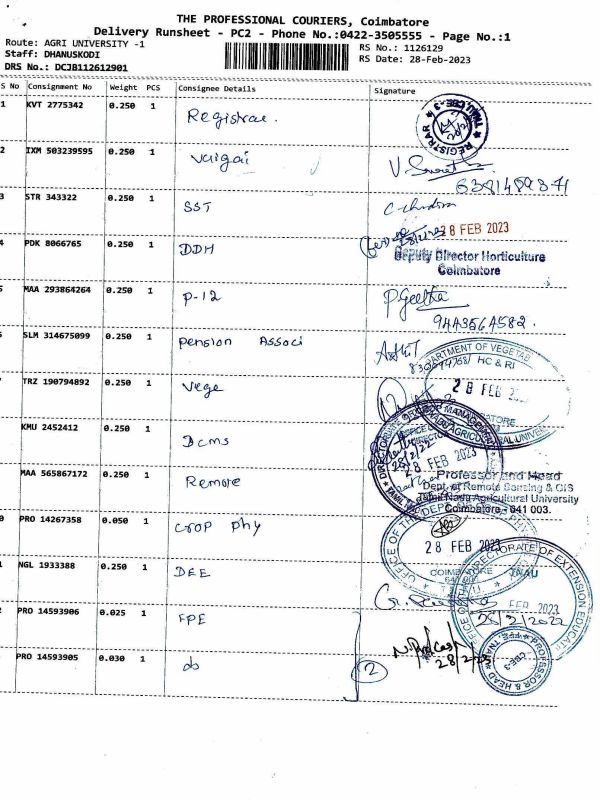 THE PROFESSIONAL COURIERS, Coimbatore
Delivery Runsheet - PC2 - Phone No.:0422-3505555 - Page No.:1
Route: AGRI UNIVERSITY -1
Staff: DHANUSKODI
DRS No.: DCJB112612901
RS No.: 1126129
RS Date: 28-Feb-2023
S No Consignment No Weight PCS Consignee Details Signature
1 KVT 2775342 0.250 1 Registrar.
REGISTRAR TNAU CBE-3
2 IXM 503239595 0.250 1 vaigai
3 STR 343322 0.250 1 SST
28 FEB 2023
4 PDK 8066765 0.250 1 DDH
Deputy Director Horticulture
Coimbatore
MAA 293864264 0.250 1 P-12 P.Geetha
9443564582.
SLM 314675099 0.250 1 pension Associ
TRZ 190794892 0.250 1 vege
DEPARTMENT OF VEGETAB
HC & RI
28 FEB
KMU 2452412 0.250 1 Dcms
28 FEB 2023
MAA 565867172 0.250 1 Remote
Professor and Head
Dept. of Remote Sensing & GIS
Tamil Nadu Agricultural University
Coimbatore - 641 003.
0 PRO 14267358 0.050 1 crop phy
OFFICE OF THE
28 FEB 2023
COIMBATORE
NGL 1933388 0.250 1 DEE
DIRECTORATE OF EXTENSION EDUCAT
TNAU
FEB 2023
2 PRO 14593906 0.025 1 FPE
PRO 14593905 0.030 1 do 2
28/2/23
PROFESSOR & HEAD
CBE-3